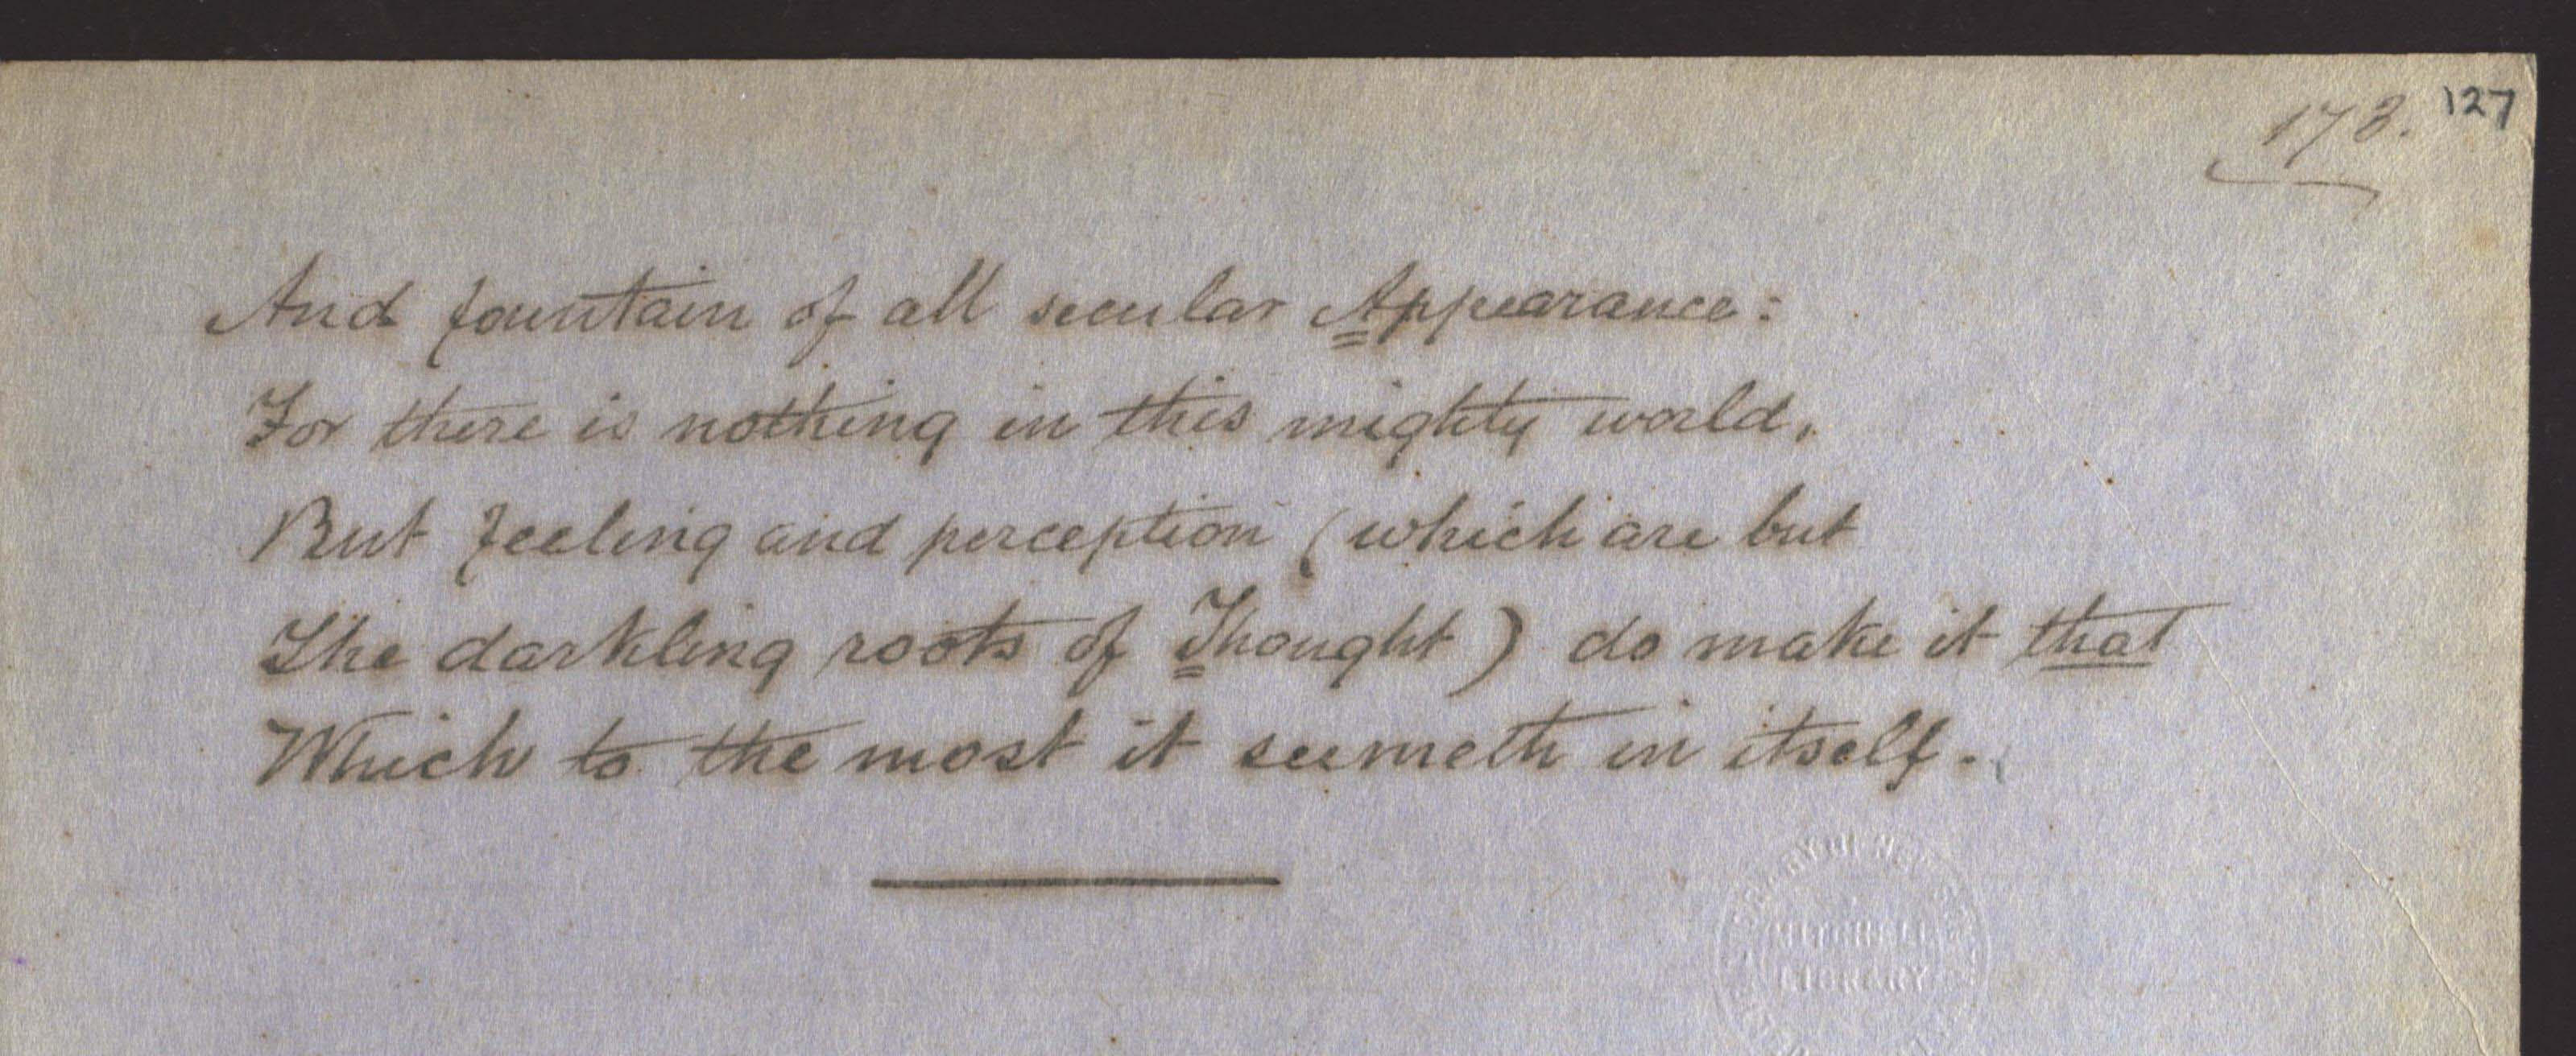 173. 127
And fountain of all secular Appearance:
For there is nothing in this mighty world,
But feeling and perception (which are but
The darkling roots of Thought) do make it that
Which to the most it seemeth in itself.
MITCHELL
LIBRARY